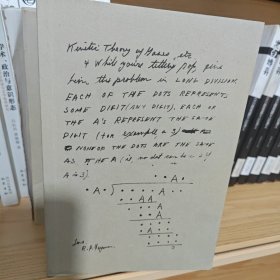 学术
政治与意识形态
Kinetic Theory of Gases, etc
+ While you're telling Pop, give
him this problem in LONG DIVISION.
EACH OF THE DOTS REPRESENTS
SOME DIGIT (ANY DIGIT). EACH OF
THE A's REPRESENT THE SAME
DIGIT (for example a 3)
NONE OF THE DOTS ARE THE SAME
AS THE A (i.e. no dot can be a 3 if
A is 3).
. . A .
. A . ) . . . . A . .
. . A A
. . . A
. . A
. . . .
. A . .
. . . .
. . . .
0
Love
R.P. Feynman